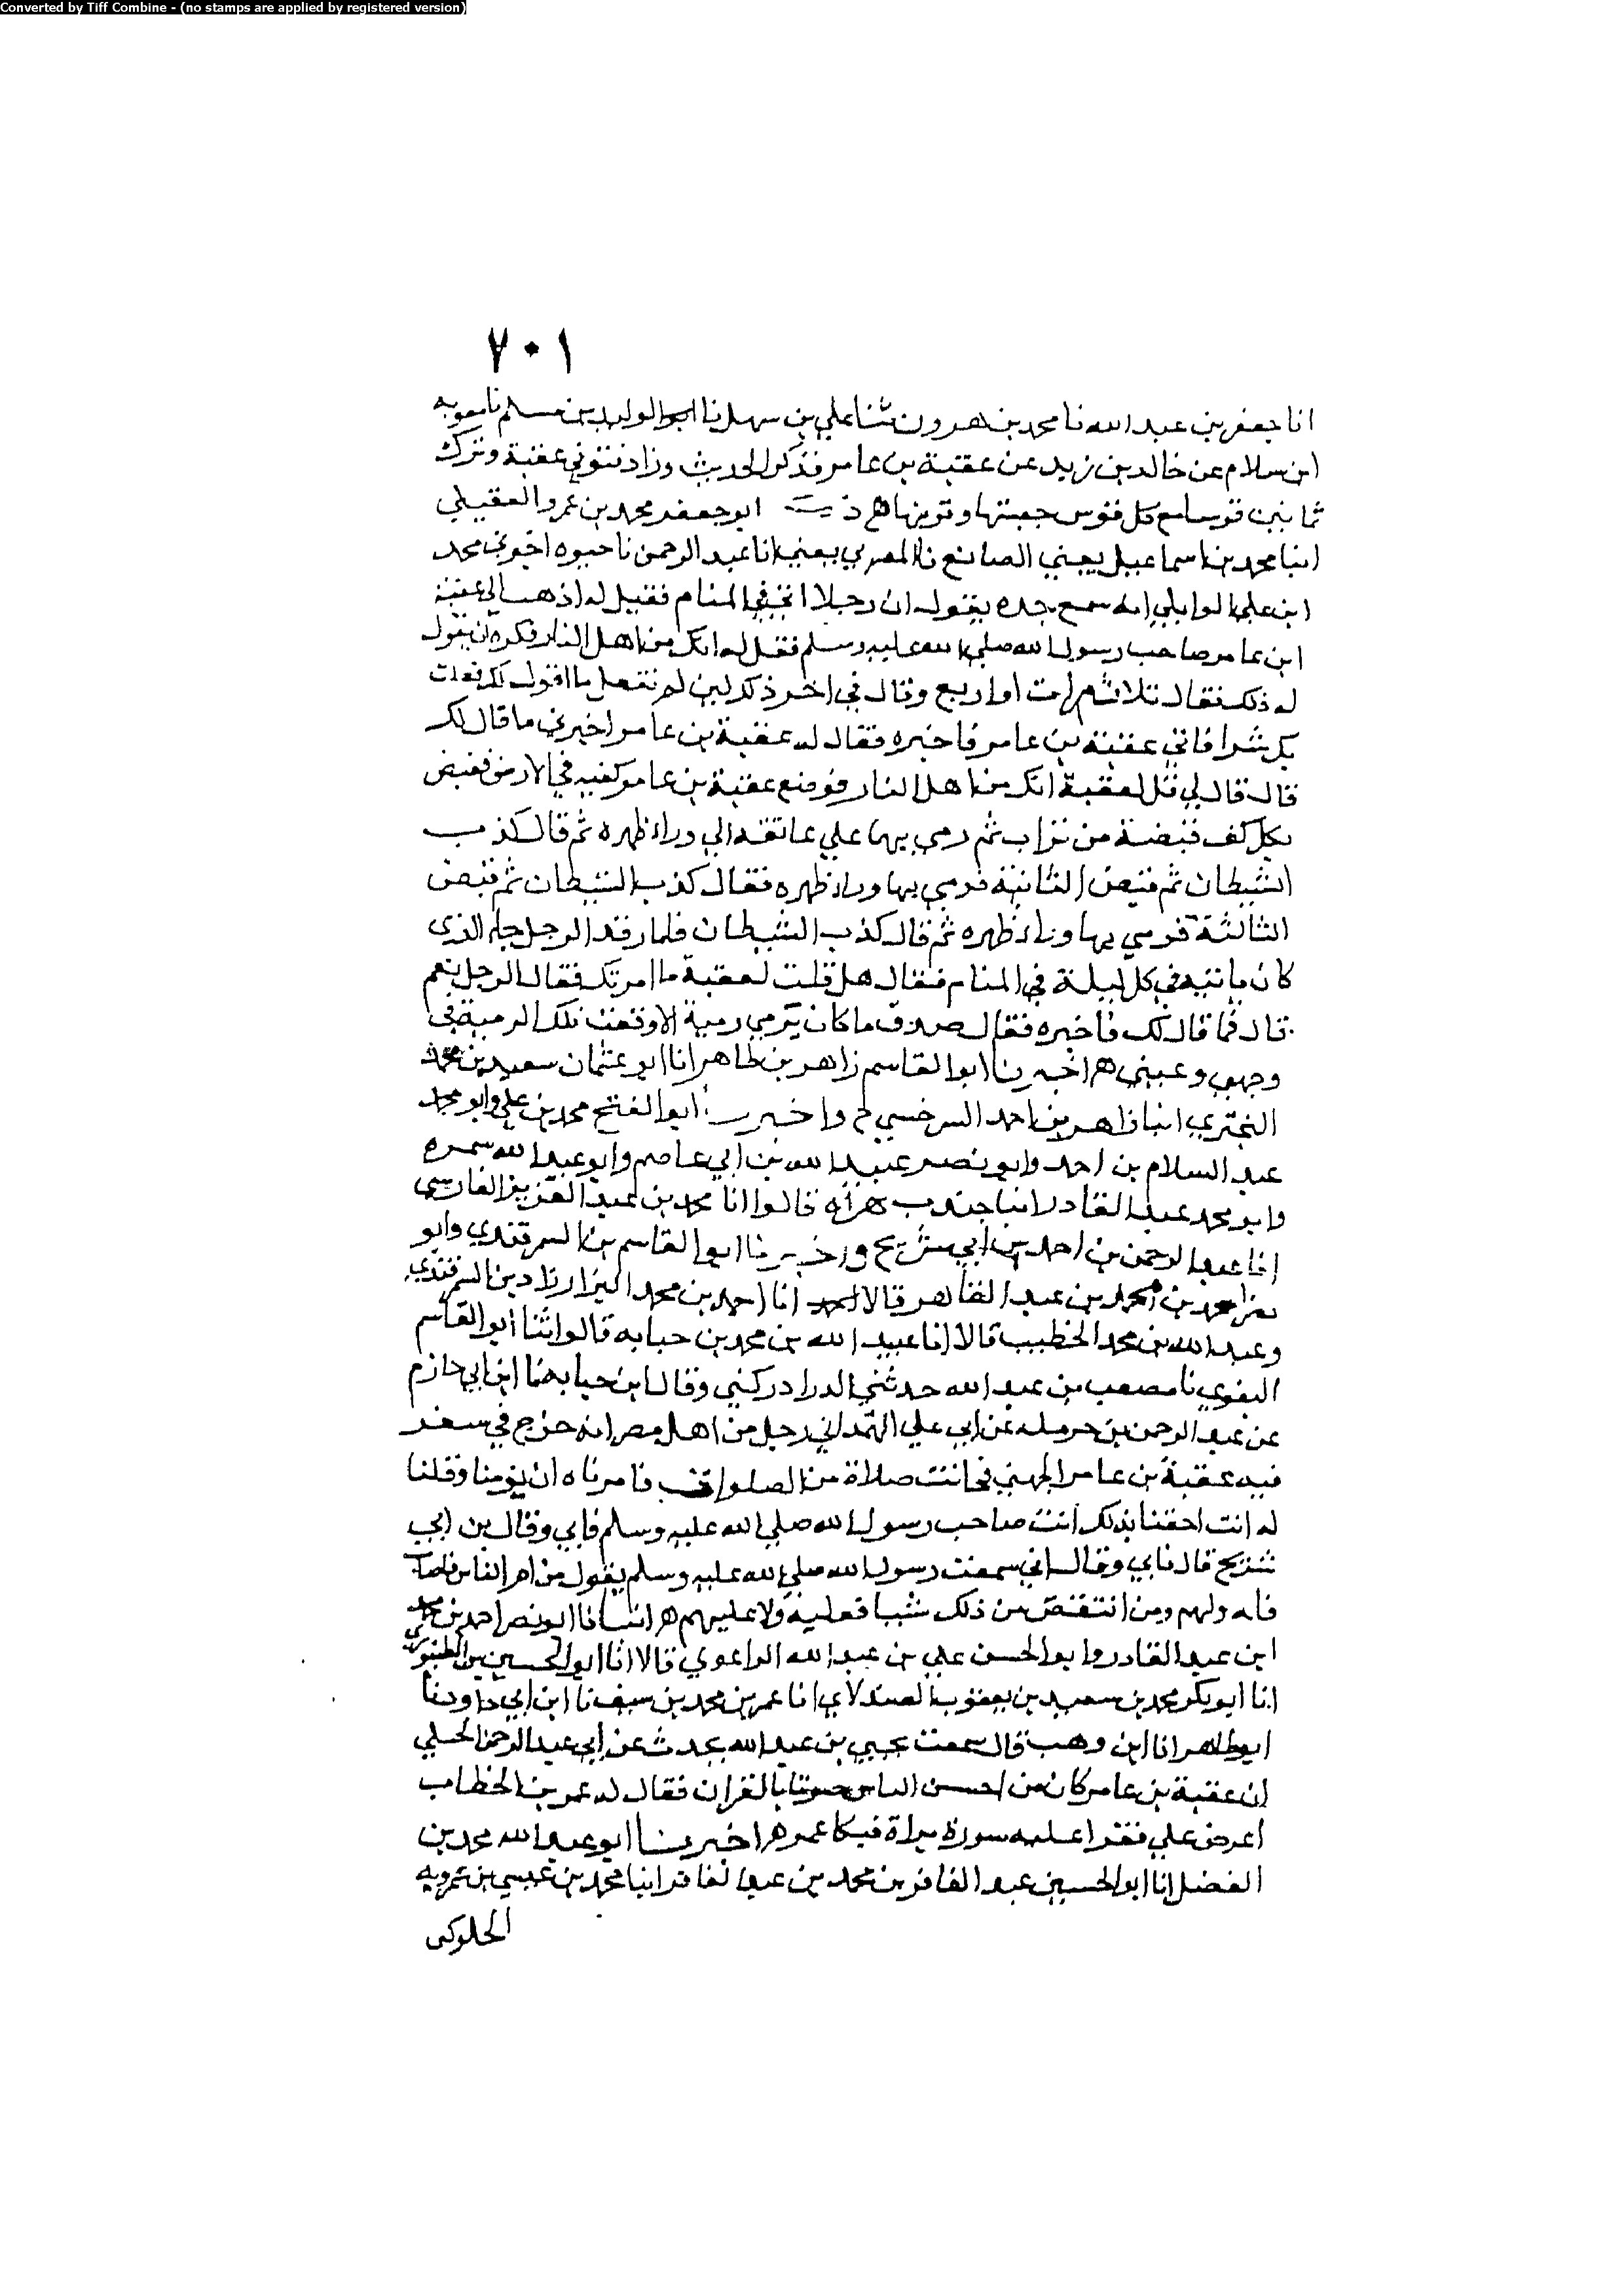 Converted by Tiff Combine - (no stamps are applied by registered version)
٧٠١
انا جعفر بن عبد الله نا محمد بن هرون ثنا علي بن سهل نا الوليد بن مسلم نا معويه
ابن سلام عن خالد بن زيد عن عقبة بن عامر فذكر الحديث وزاد فتوفي عقبة وترك
ثمانين قوسا مع كل قوس جعبتها وقرنها هـ ابو جعفر محمد بن عمرو العقيلي
انبا محمد بن اسماعيل يعني الصائغ نا المصري يعني انا عبد الرحمن نا حيوه اخبرني محمد
ابن علي الوابلي انه سمع جده يقول ان رجلا اتي في المنام فقيل له اذهب الي عقبة
ابن عامر صاحب رسول الله صلي الله عليه وسلم فقل له انك من اهل النار فكره ان يقول
له ذلك فقال ثلاث مرات او اربع وقال في اخر ذلك لين لم تفعل ما اقول لك فعلت
بك شرا فاتي عقبة بن عامر فاخبره فقال له عقبة بن عامر اخبرني ما قال لك
قال قال لي قل لعقبة انك من اهل النار فوضع عقبة بن عامر كفيه في الارض فقبض
بكل كف قبضة من تراب ثم رمي بها علي عاتقه الي وراء ظهره ثم قال كذب
الشيطان ثم قبض الثانية فرمي بها وراء ظهره فقال كذب الشيطان ثم قبض
الثالثة فرمي بها وراء ظهره ثم قال كذب الشيطان فلما رقد الرجل جاء الذي
كان ياتيه في كل ليلة في المنام فقال هل قلت لعقبة ما امرتك فقال الرجل نعم
قال فما قال لك فاخبره فقال صدق ما كان يرمي رمية الا وقعت تلك الرمية في
وجهي وعيني هـ اخبرنا ابو القاسم زاهر بن طاهر انا ابو عثمان سعيد بن محمد
البحتري انبا زاهر بن احمد السرخسي ح واخبرنا ابو الفتح محمد بن علي وابو محمد
عبد السلام بن احمد وابو نصر عبيد الله بن ابي عاصم وابو عبد الله سمره
وابو محمد عبد القادر انبا جندب هراه قالوا انا محمد بن عبد العزيز الفارسي
انا عبد الرحمن بن احمد بن ابي شريح واخبرنا ابو القاسم بن السمرقندي وابو
احمد بن محمد بن عبد القاهر قالا انا احمد بن محمد البزار زاد بن السمرقندي
وعبد الله بن محمد الخطيب قالا انا عبيد الله بن محمد بن حبابه قالوا ثنا ابو القاسم
البغوي نا مصعب بن عبد الله حدثني الدراوركني وقال ابن حبابه نا ابن ابي حازم
عن عبد الرحمن بن حرمله عن ابي علي الهمداني رجل من اهل مصر انه خرج في سفر
فيه عقبة بن عامر الجهني فحانت صلاة من الصلوات فامرناه ان يومنا وقلنا
له انت احقنا بذلك انت صاحب رسول الله صلي الله عليه وسلم فابي وقال بن ابي
شريح قال فابي وقال اني سمعت رسول الله صلي الله عليه وسلم يقول من ام الناس فاصاب
فله ولهم ومن انتقص من ذلك شيا فعليه ولا عليهم هـ انبانا ابو نصر احمد بن محمد
ابن عبد القادر وابو الحسن علي بن عبيد الله الراغوني قالا انا ابو الحسين بن الطيوري
انا ابو بكر محمد بن سعيد بن يعقوب الصندلاي انا عمر بن محمد بن سيف نا ابن ابي داود نا
ابو طاهر انا ابن وهب قال سمعت يحيي بن عبد الله يحدث عن ابي عبد الرحمن الحبلي
ان عقبة بن عامر كان من احسن الناس صوتا بالقران فقال له عمر بن الخطاب
اعرض علي فقرا عليه سورة براة فبكا عمر هـ اخبرنا ابو عبد الله محمد بن
الفضل انا ابو الحسين عبد الغافر بن محمد بن عبد الغافر انبا محمد بن عيسي بن عمرويه
الجلوكى